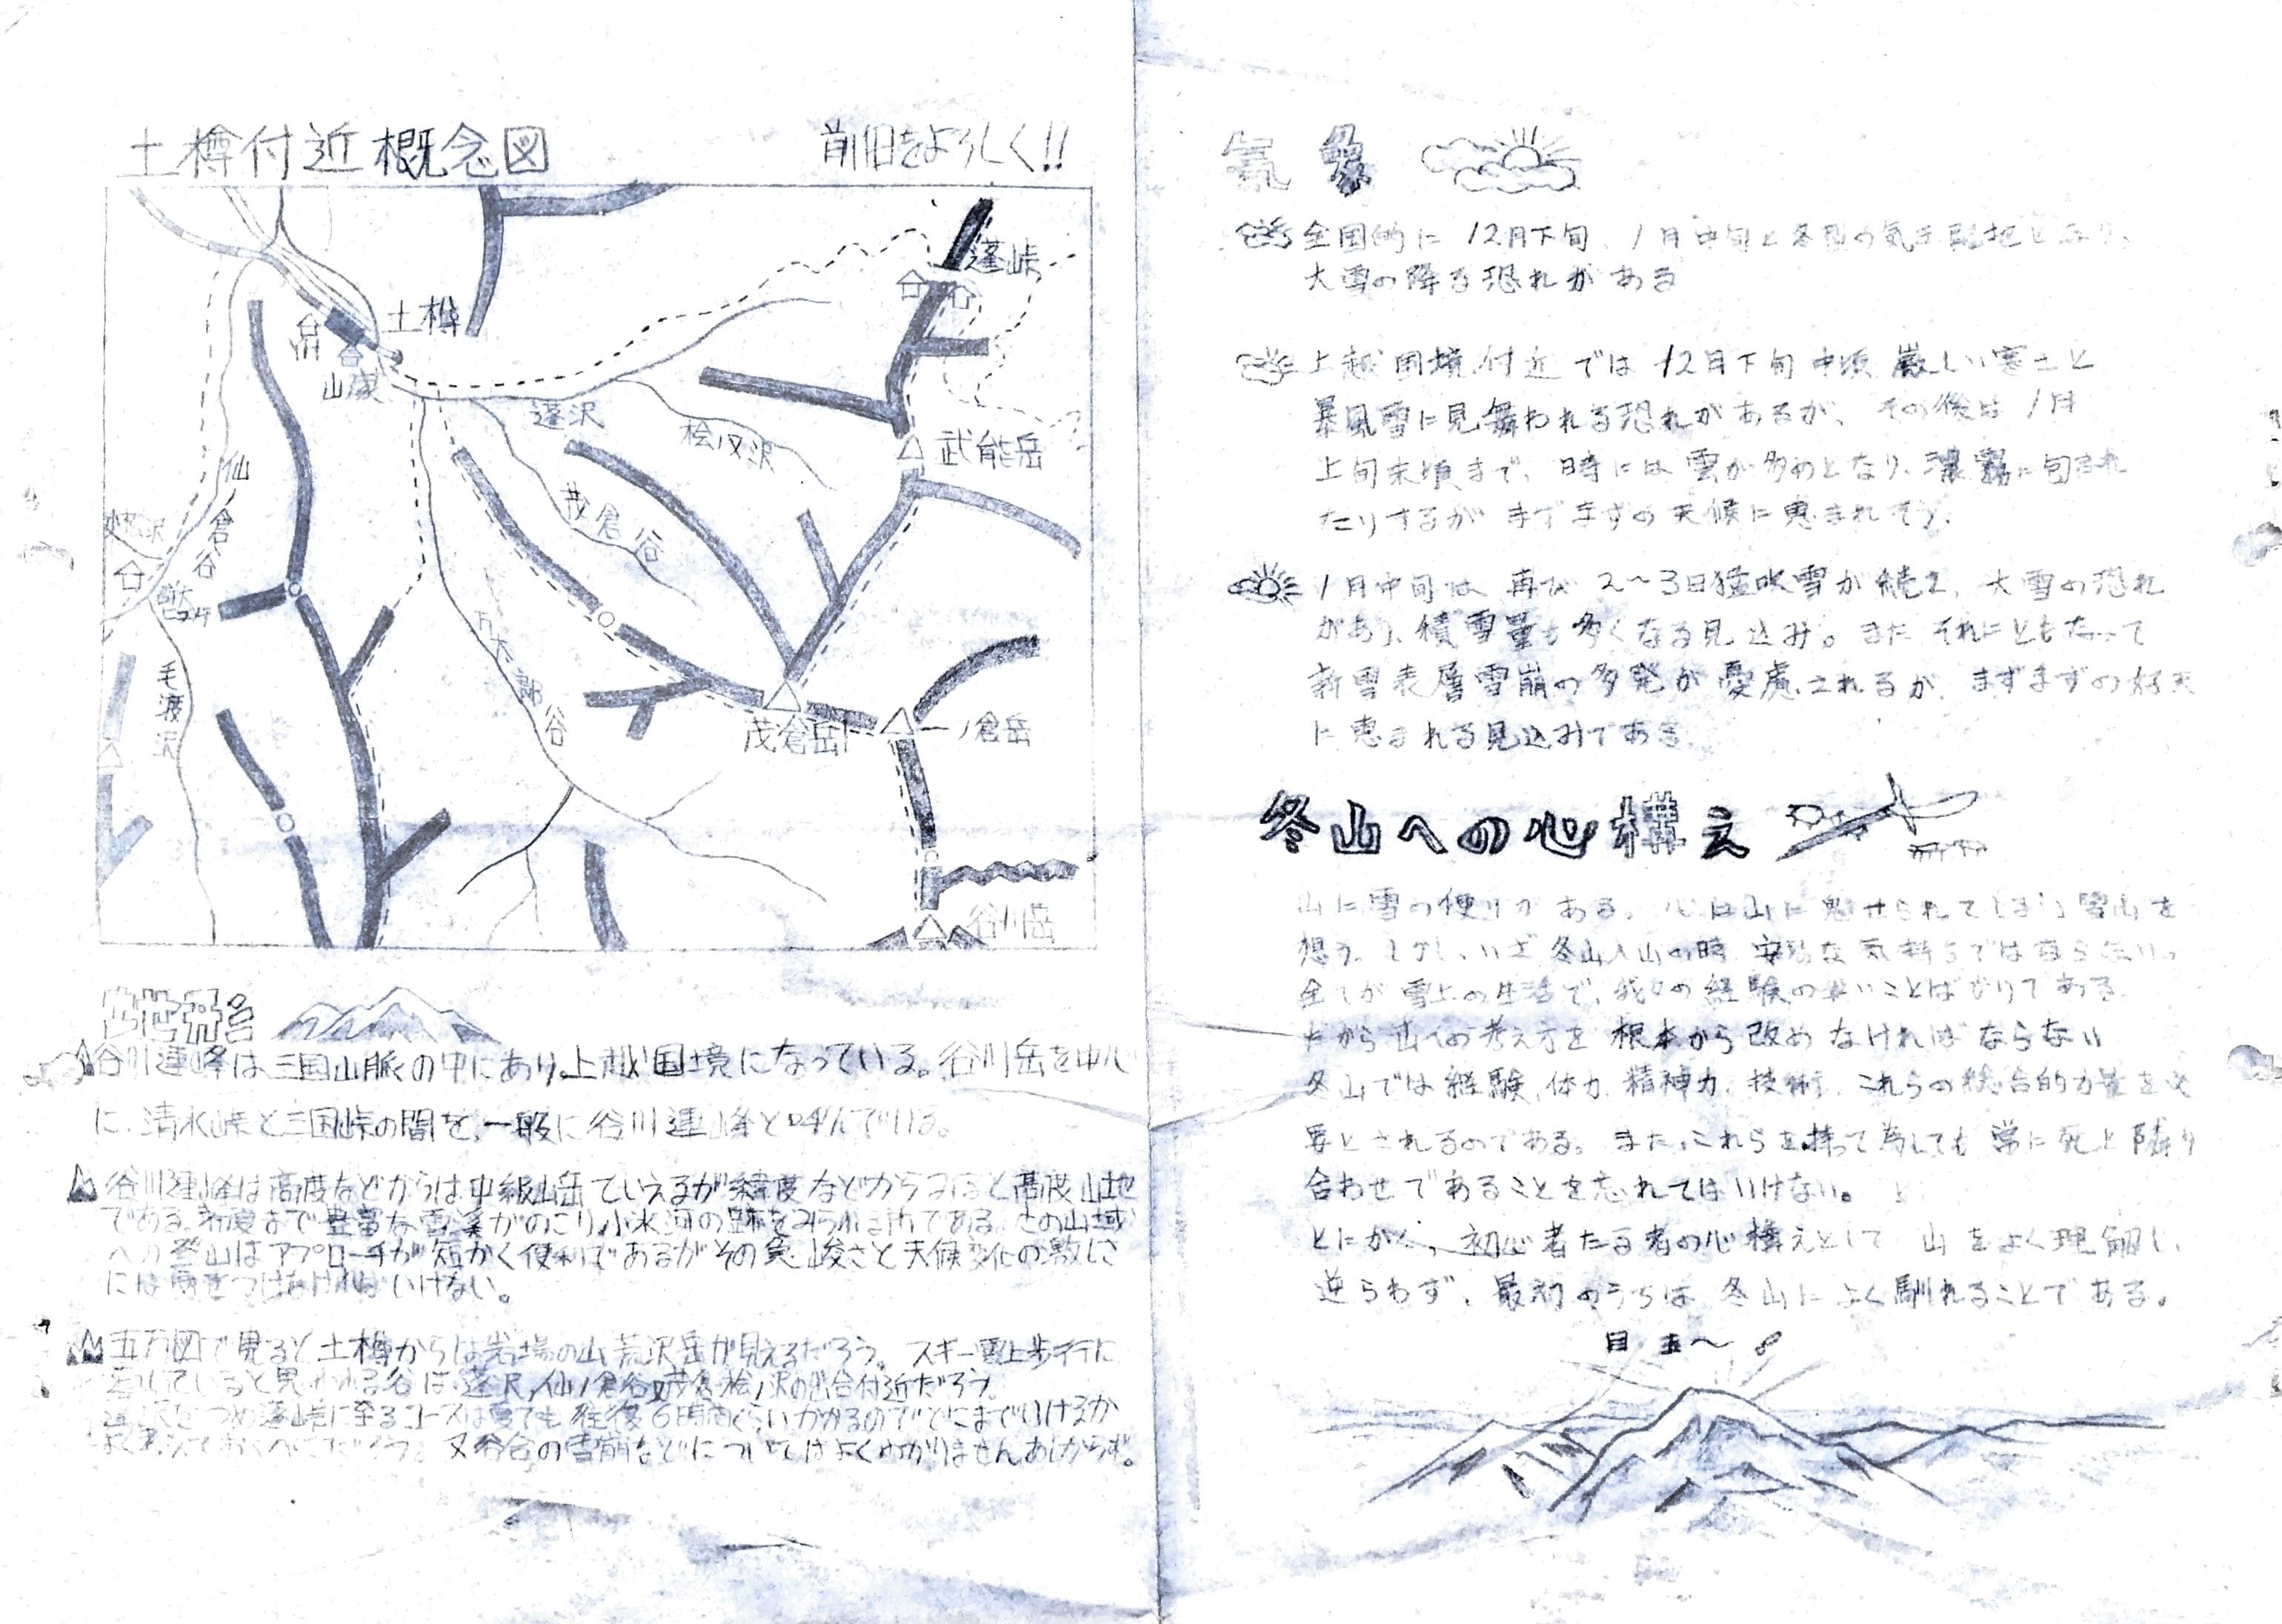 土樽付近概念図
前旧をよろしく!!
蓬峠
土樽
山荘
蓬沢
桧又沢
武能岳
仙ノ倉谷
茂倉谷
万太郎谷
毛渡沢
茂倉岳
一ノ倉岳
谷川岳
地形
谷川連峰は三国山脈の中にあり、上越国境になっている。谷川岳を中心
に、清水峠と三国峠の間を、一般に谷川連峰と呼んでいる。
谷川連峰は高度などからは中級山岳でいえるが緯度などからみると高度山地
である。初夏まで豊富な雪渓がのこり、小氷河の跡をみられる所である。この山域
への登山はアプローチが短かく便利ばであるがその急峻さと天候変化の激しさ
には気をつけなければいけない。
五万図で見ると土樽からは岩場の山、荒沢岳が見えるだろう。スキー雪上歩行に
していると思われる谷は、蓬沢、仙ノ倉谷、茂倉、桧ノ沢の出合付近だろう。
蓬峠に至るコースは夏でも往復6時間くらいかかるのでどこまでいけるか
よく考えておくべきだろう。又各谷の雪崩などについてはよくわかりませんあしからず。
気象
全国的に12月下旬、1月中旬と冬型の気圧配地となり、
大雪の降る恐れがある
上越国境付近では12月下旬中頃厳しい寒さと
暴風雪に見舞われる恐れがあるが、その後は1月
上旬末頃まで、時には雲が多めとなり、濃霧に包まれ
たりするがまずまずの天候に恵まれそう。
1月中旬は再び2〜3日猛吹雪が続き、大雪の恐れ
があり、積雪量も多くなる見込み。またそれにともなって
新雪表層雪崩の多発が憂慮されるが、まずまずの好天
に恵まれる見込みである
冬山への心構え
山に雪の便りがある。心は山に魅せられてしまう雪山を
想う。しかし、いざ冬山入山の時、安易な気持ちではならない。
全てが雪上の生活で、我々の経験のないことばかりである
だから山への考え方を根本から改めなければならない
冬山では経験、体力、精神力、技術、これらの総合的力量を必
要とされるのである。また、これらを持って為しても常に死と隣り
合わせであることを忘れてはいけない。
とにかく、初心者たる者の心構えとして山をよく理解し、
逆らわず、最初のうちは冬山によく馴れることである。